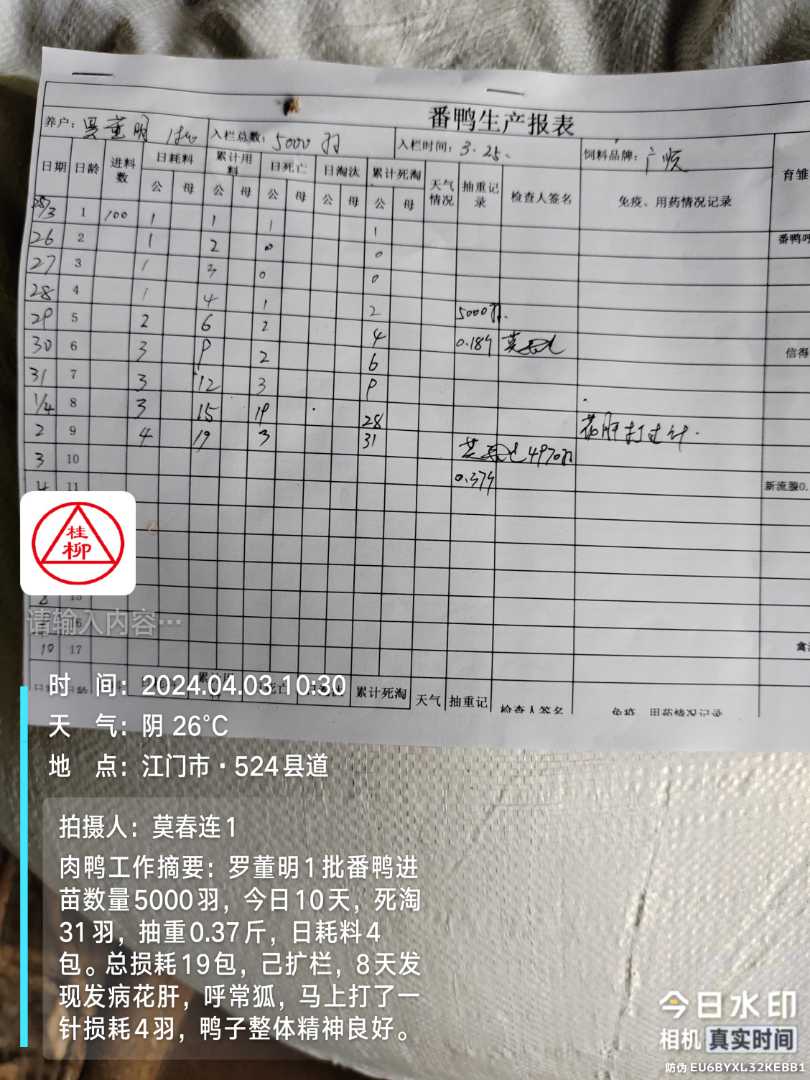 番鸭生产报表
养户: 罗董明 1批 入栏总数: 5000羽 入栏时间: 3.25. 饲料品牌: 广顺
日期 日龄 进料数 日耗料 累计用料 日死亡 日淘汰 累计死淘 天气情况 抽重记录 检查人签名 免疫、用药情况记录 育雏
公 母 公 母 公 母 公 母 公 母
25/3 1 100 1 1 1 1
番鸭呼
26 2 1 2 0 0
27 3 1 3 0 0
28 4 1 4 1 2
29 5 2 6 2 4 5000羽.
30 6 3 9 2 6 0.18斤
信得
31 7 3 12 3 9
1/4 8 3 15 19 28 花肝打过针.
2 9 4 19 3 31 4970羽
3 10 0.37斤
4 11
新流腺0.
桂
柳
15
请输入内容…
16
10 17
禽
日龄 累计死淘 天气 抽重记 检查人签名 免疫、用药情况记录
时 间: 2024.04.03 10:30
天 气: 阴 26℃
地 点: 江门市·524县道
拍摄人: 莫春连1
肉鸭工作摘要: 罗董明1批番鸭进
苗数量5000羽, 今日10天, 死淘
31羽, 抽重0.37斤, 日耗料4
包。总损耗19包, 己扩栏, 8天发
现发病花肝, 呼常狐, 马上打了一
针损耗4羽, 鸭子整体精神良好。
今日水印
相机 真实时间
防伪 EU6BYXL32KEBB1